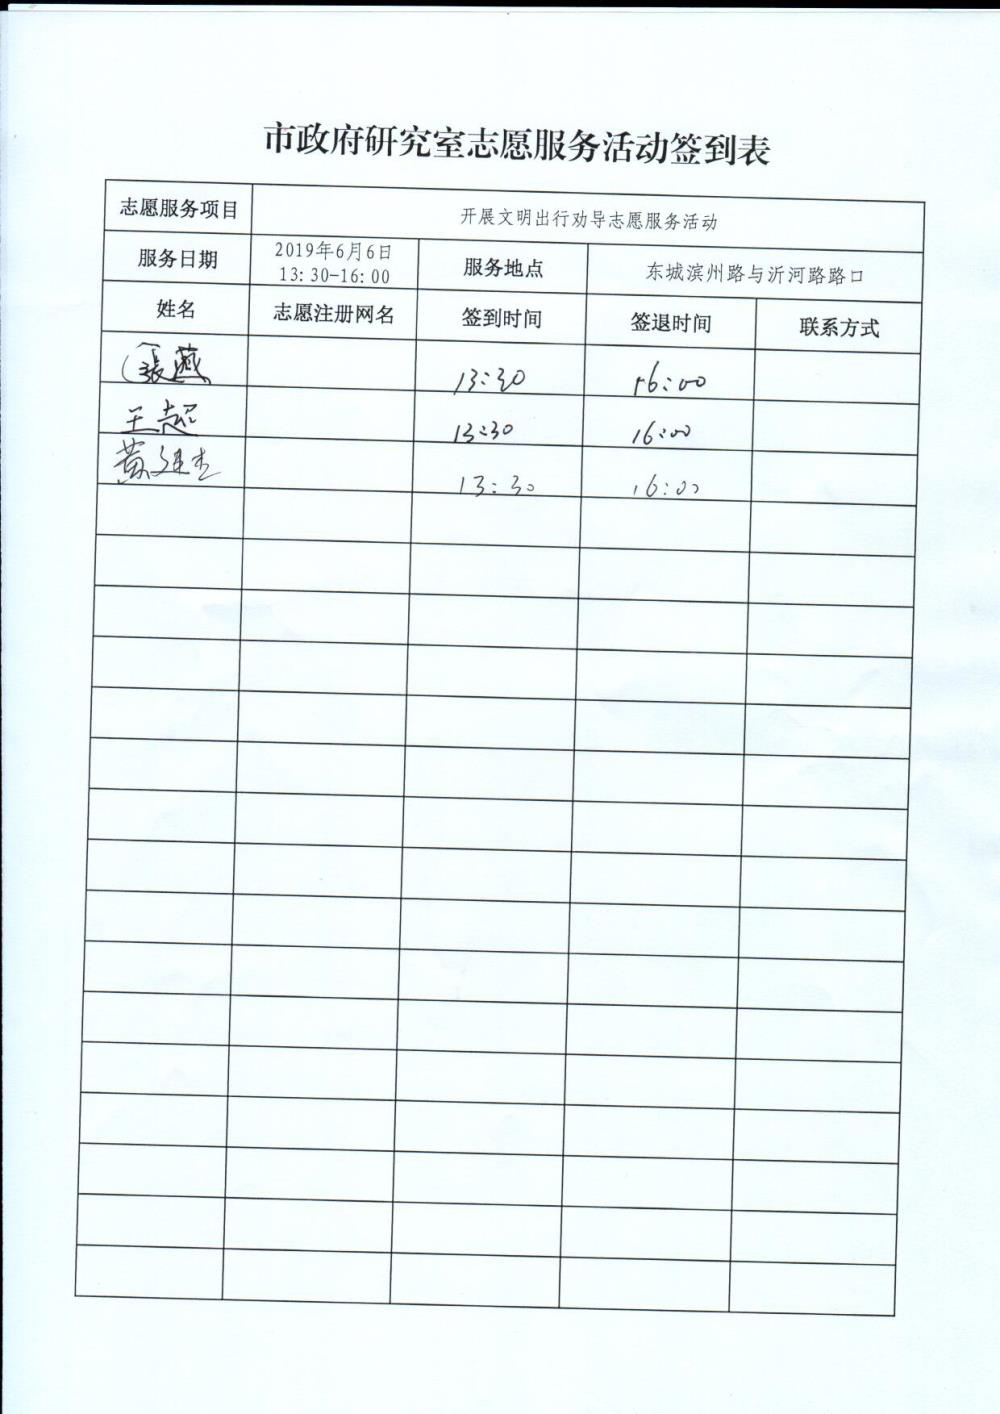 市政府研究室志愿服务活动签到表
志愿服务项目 开展文明出行劝导志愿服务活动
服务日期 2019年6月6日 13:30-16:00 服务地点 东城滨州路与沂河路路口
姓名 志愿注册网名 签到时间 签退时间 联系方式
張燕 13:30 16:00
王超 13:30 16:00
黄 13:30 16:00